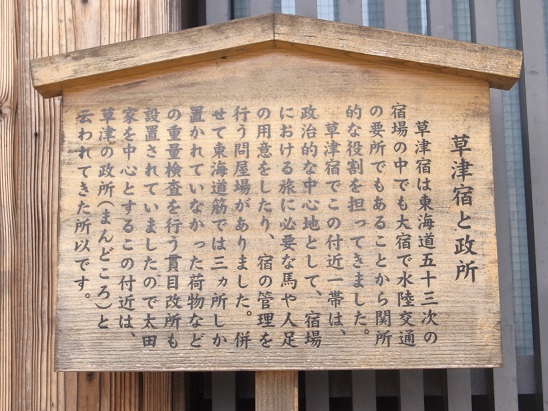 草津宿と政所
草津宿は東海道五十三次の
宿場の中でも大宿で水陸交通
の要所でもあることから関所
的な役割を担ってきました。
草津宿でこの付近一帯は、
政治的な中心地として、宿場
における旅に必要な馬や人足
の用意をしたり、宿の管理を
行う問屋場がありました。併
せて東海道筋では三ヵ所しか
置かれていなかった荷物など
の重量検査を行う貫目改所も
設置されていましたので太田
家を中心とするこの付近は、
草津の政所(まんどころ)と
云われてきた所以です。